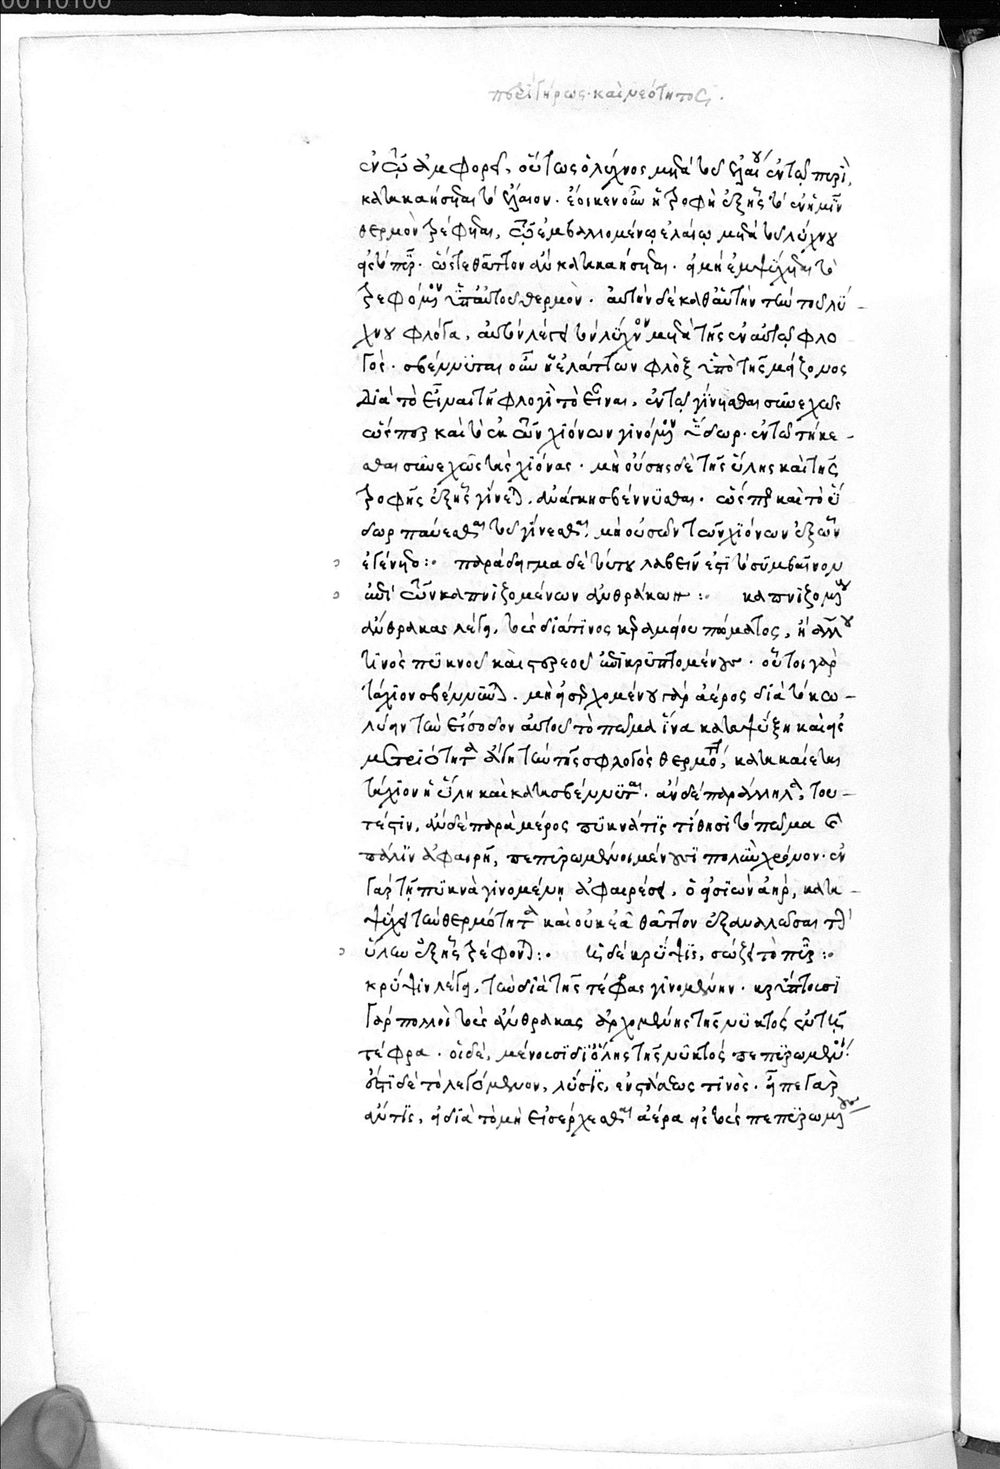 περὶ γήρως καὶ νεότητος.
ἐν τῷ ἀμφορεῖ, οὕτως ὁ λύχνος μετὰ τοῦ ἐλαίου ἐν τῷ πυρὶ,
κατακαήσεται τὸ ἔλαιον. ἔοικεν οὖν ἡ τροφὴ ἐξ ἧς τὸ ἐν ἡμῖν
θερμὸν τρέφεται, τῷ ἐμβαλλομένῳ ἐλαίῳ μετὰ τοῦ λύχνου
εἰς τὸ πῦρ. ὥστε θᾶττον ἂν κατακαήσεται. ἢ μὴ ἐμψύχεται τὸ
τρεφόμενον ὑπ' αὐτοῦ θερμὸν. αὐτὴν δὲ καθ' αὑτὴν τὴν τοῦ λύ-
χνου φλόγα, αὐτὸν λέγει τὸν λύχνον μετὰ τῆς ἐν αὐτῷ φλο
γὸς. σβέννυται οὖν ἡ ἐλάττων φλὸξ ὑπὸ τῆς μείζονος
διὰ τὸ εἶναι τῇ φλογὶ τὸ εἶναι, ἐν τῷ γίνεσθαι συνεχῶς
ὥσπερ καὶ τὸ ἐκ τῶν χιόνων γινόμενον ὕδωρ. ἐν τῷ τήκε-
σθαι συνεχῶς τὰς χιόνας. μὴ οὔσης δὲ τῆς ὕλης καὶ τῆς
τροφῆς ἐξ ἧς γίνεται, ἀνάγκη σβέννυσθαι. ὥσπερ καὶ τὸ ὕ
δωρ παύεσθαι τοῦ γίνεσθαι, μὴ οὐσῶν τῶν χιόνων ἐξ ὧν
ἐγένετο: παράδειγμα δὲ τούτου λαβεῖν ἐστὶ τὸ συμβαῖνον
ἐπὶ τῶν καταπνιγομένων ἀνθράκων: καπνιζομένους
ἄνθρακας λέγει, τοὺς διά τινος κεραμείου πώματος, ἢ ἄλλου
τινὸς πυκνοῦ καὶ στερεοῦ ἐπικρυπτομένους. οὗτοι γὰρ
τάχιον σβέννυνται. μὴ εἰσερχομένου γὰρ ἀέρος διὰ τὸ κω-
λύειν τὴν εἴσοδον αὐτοῦ τὸ πῶμα ἵνα καταψύξῃ καὶ εἰς
μετριότητα ἄγῃ τὴν τῆς φλογὸς θερμότητα, κατακαίεται
τάχιον ἡ ὕλη καὶ κατασβέννυται. ἂν δὲ παράλληλα, του-
τέστιν, ἂν δὲ παρὰ μέρος πυκνά τις τίθησι τὸ πῶμα καὶ
πάλιν ἀφαιρῇ, πεπυρωμένοι μένουσι πολὺν χρόνον. ἐν
γὰρ τῇ πυκνὰ γινομένῃ ἀφαιρέσει, ὁ εἰσιὼν ἀὴρ, κατα-
ψύχει τὴν θερμότητα καὶ οὐκ ἐᾷ θᾶττον ἐξαναλῶσαι τὴν
ὕλην ἐξ ἧς τρέφονται: ἡ δὲ κρύψις, σώζει τὸ πῦρ:
κρύψιν λέγει, τὴν διὰ τῆς τέφρας γινομένην. κρύπτουσι
γὰρ πολλοὶ τοὺς ἄνθρακας ἀρχομένης τῆς νυκτὸς ἐν τῇ
τέφρᾳ. οἱ δὲ, μένουσι δι' ὅλης τῆς νυκτὸς πεπυρωμένοι.
ἔστι δὲ τὸ λεγόμενον, λύσις, ἐνστάσεώς τινος. εἶπε γὰρ
ἄν τις, εἰ διὰ τὸ μὴ εἰσέρχεσθαι ἀέρα εἰς τοὺς πεπυρωμένους